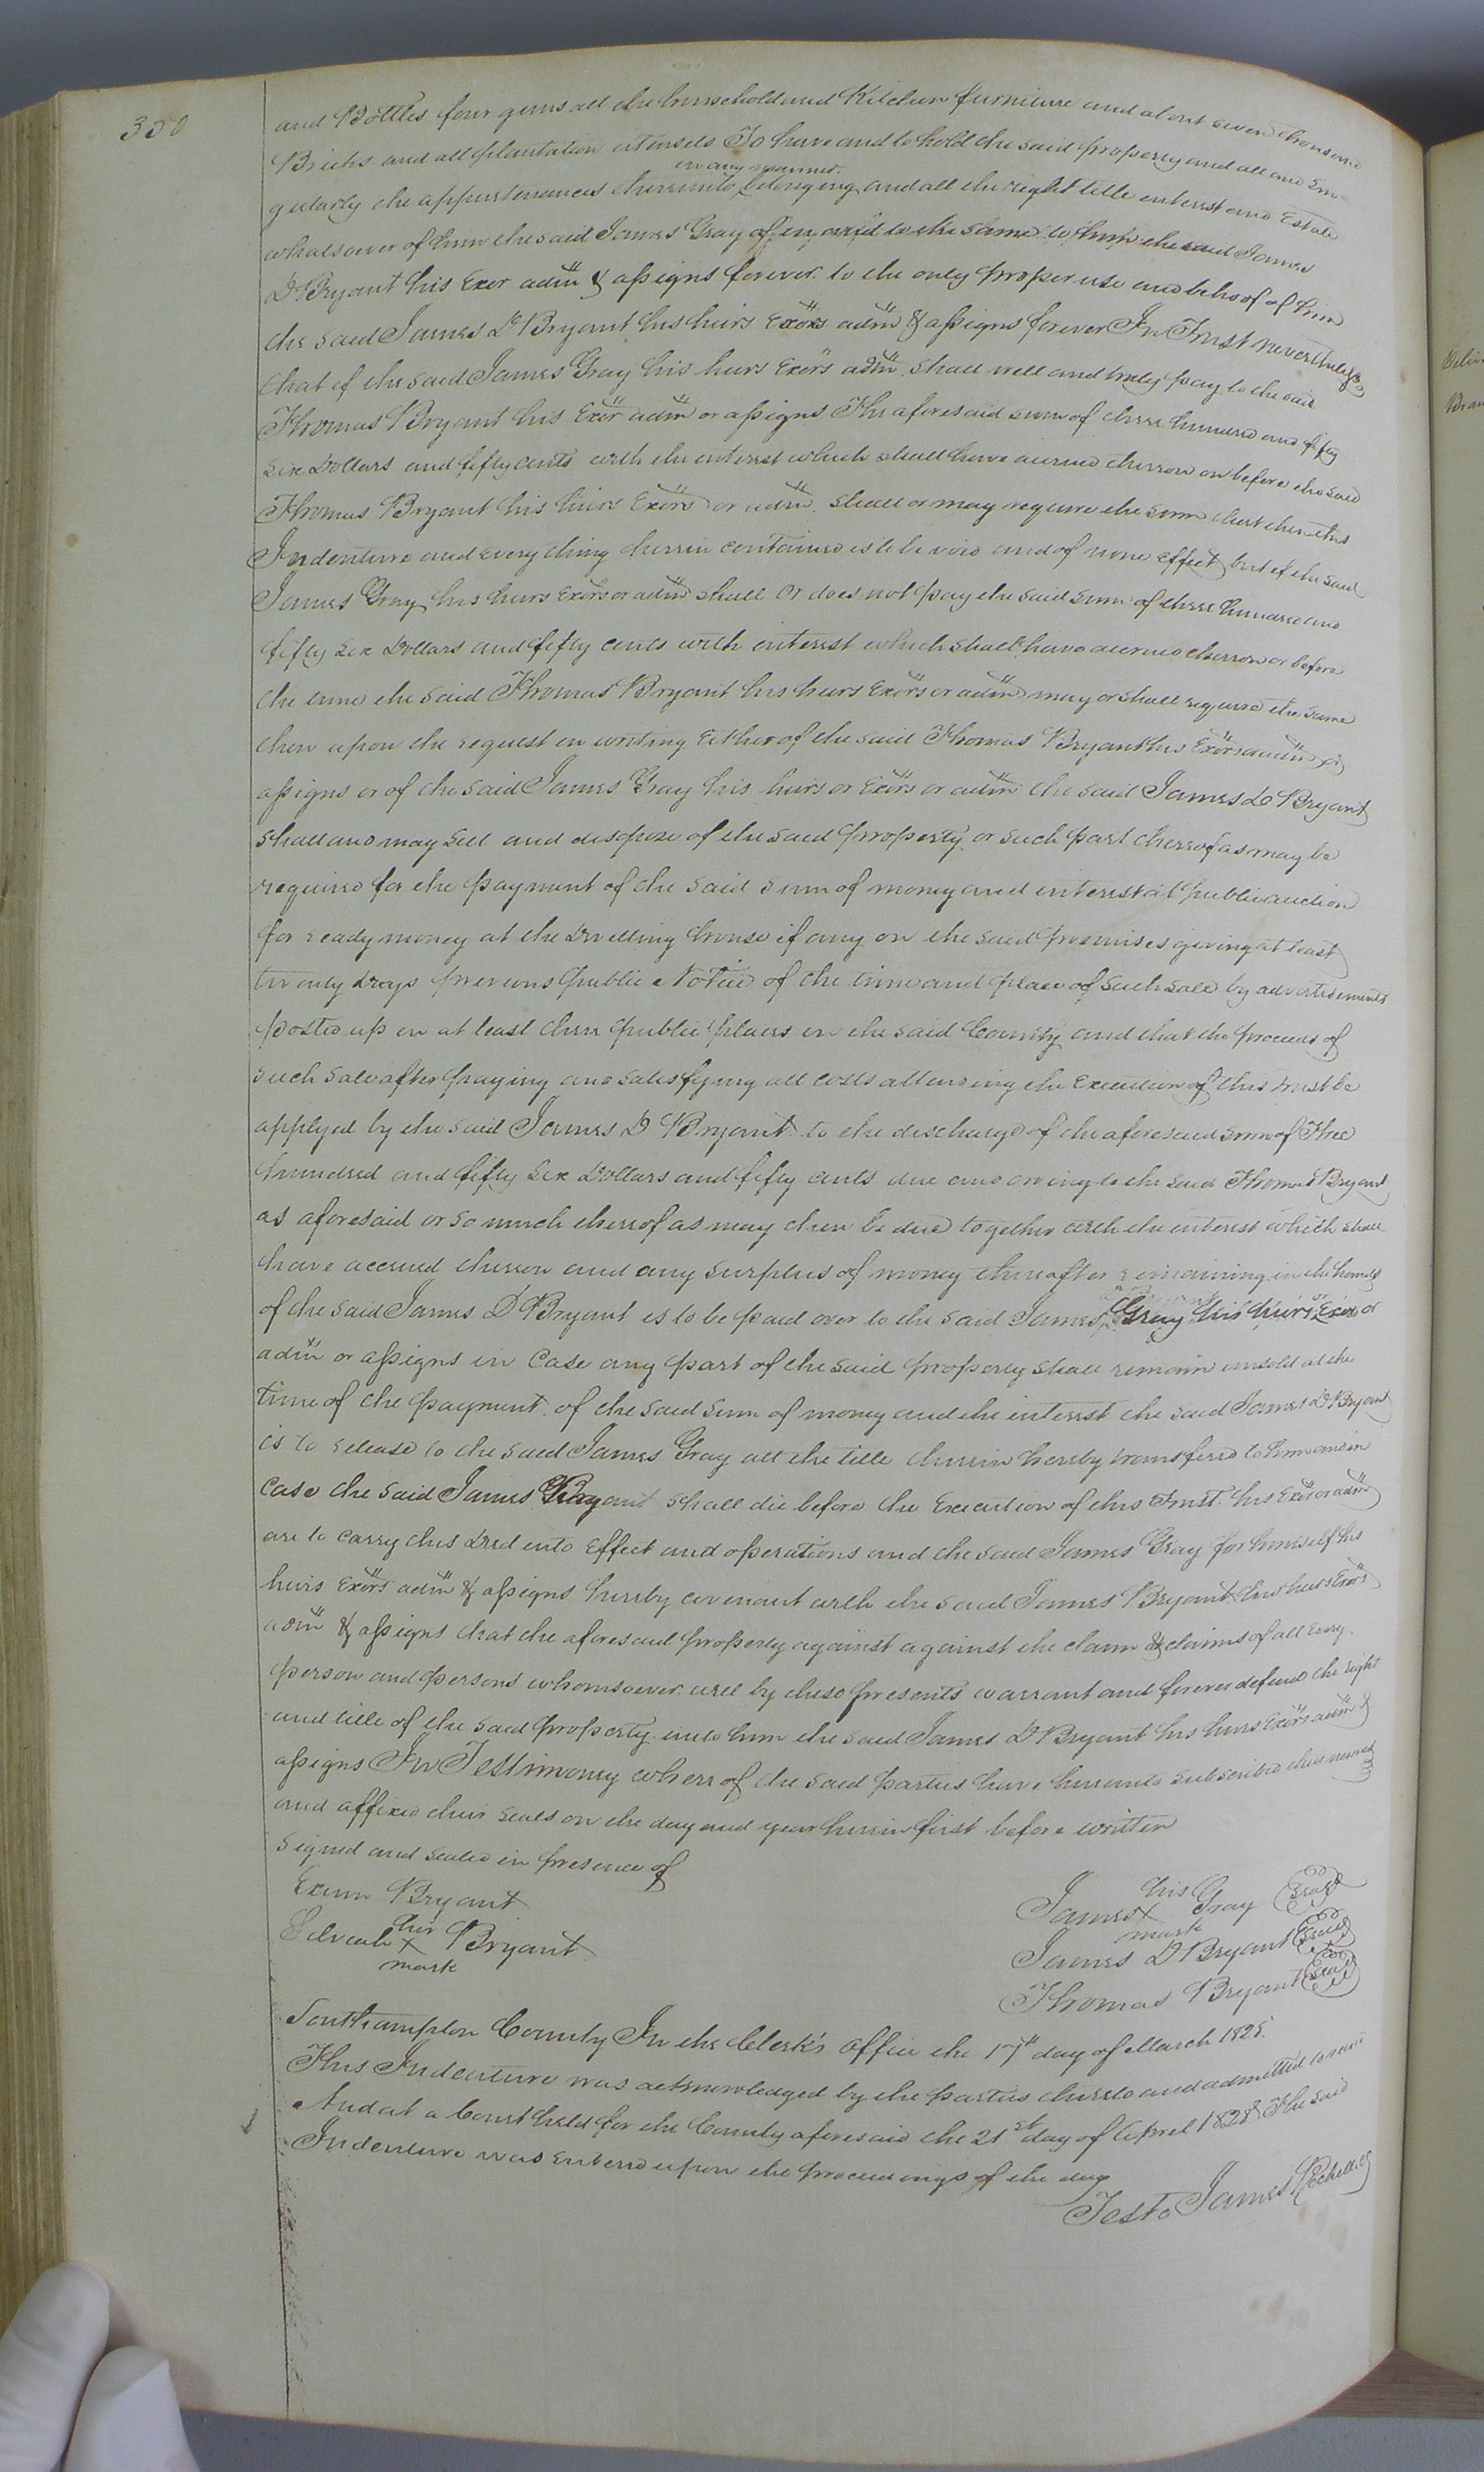 350
and Bottles four guns all the household and Kitchen furniture and about seven thousand
Bricks and all plantation utensels To have and to hold the said property and all and Sin
in any manner
gularly the appurtenances thereunto belonging and all the right title interest and Estate
whatsoever of him the said James Gray of in and to the same to him the said James
D Bryant his Exor adm & assigns forever to the only proper use and behoof of him
the said James D Bryant his heirs Exors adm & assigns forever In Trust nevertheless
that if the said James Gray his heirs Exors adm shall well and truly pay to the said
Thomas Bryant his Exor adm or assigns The aforesaid sum of three hundred and fifty
six Dollars and fifty cents with the interest which shall have accrued thereon on before the said
Thomas Bryant his heirs Exors or adm shall or may require the same that then this
Indenture and every thing therein contained is to be void and of none effect but if the said
James Gray his heirs Exors or adm shall or does not pay the said sum of three hundred and
fifty six Dollars and fifty cents with interest which shall have accrued thereon or before
the time the said Thomas Bryant his heirs Exors or adm may or shall require the same
then upon the request in writing Either of the said Thomas Bryant his Exors adm or
assigns or of the said James Gray his heirs or Exors or adm the said James D Bryant
shall and may sell and dispose of the said property or such part thereof as may be
required for the payment of the said sum of money and interest at public auction
for ready money at the dwelling house if any on the said premises giving at least
twenty days previous public Notice of the time and place of such sale by advertisements
posted up in at least three public places in the said County and that the proceeds of
such sale after paying and satisfying all costs attending the Execution of this trust be
applyed by the said James D Bryant to the discharge of the aforesaid sum of Three
hundred and fifty six Dollars and fifty cents due and owing to the said Thomas Bryant
as aforesaid or so much thereof as may then be due together with the interest which shall
have accrued thereon and any surplus of money thereafter remaining in the hands
of the said James D Bryant is to be paid over to the said James Gray his heirs Exor or
adm or assigns in Case any part of the said property shall remain unsold at the
time of the payment of the said sum of money and the interest the said James D Bryant
is to release to the said James Gray all the title therein hereby transfered to him and in
Case the said James Bryant shall die before the Execution of this Trust his Exor or adm
are to carry this deed into Effect and operations and the said James Gray for himself his
heirs Exors adm & assigns hereby covenant with the said James Bryant his heirs Exors
adm & assigns that the aforesaid property against against the claim & claims of all Every
person and persons whomsoever will by these presents warrant and forever defend the right
and title of the said property unto him the said James D Bryant his heirs Exors adm &
assigns In Testimoney where of the said parties have hereunto subscribed their names
and affixed their seals on the day and year herein first before written
Signed and sealed in presence of
Exum Bryant
her
Selviah X Bryant
mark
his
James X Gray Seal
mark
James D Bryant Seal
Thomas Bryant Seal
Southampton County In the Clerk's office the 17th day of March 1828.
This Indenture was acknowledged by the parties thereto and admitted to record
And at a Court held for the County aforesaid the 21st day of April 1828 The said
Indenture was entered upon the proceedings of the day
Teste James Rochelle